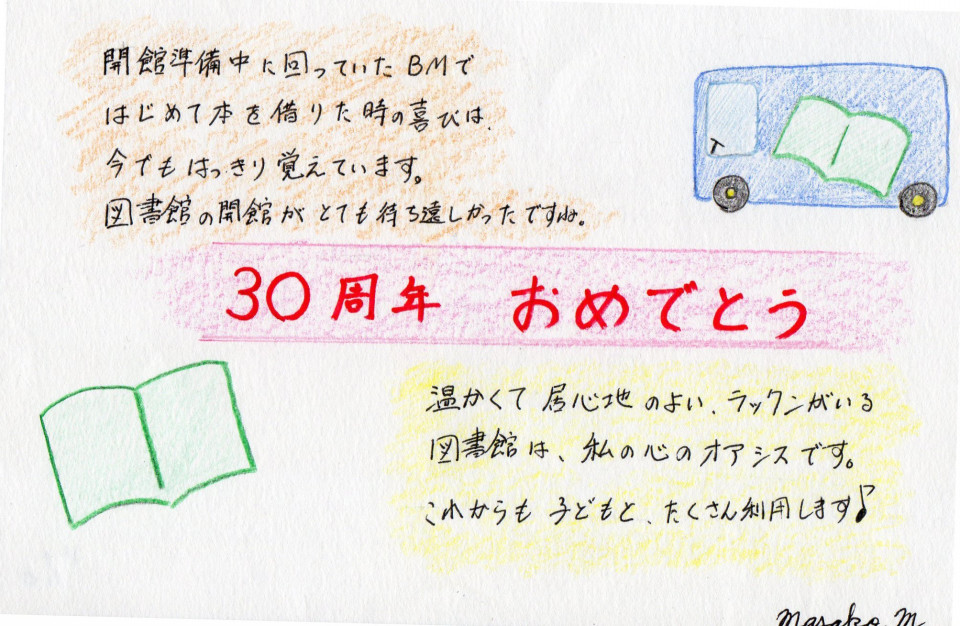 開館準備中に回っていたBMで
はじめて本を借りた時の喜びは、
今でもはっきり覚えています。
図書館の開館がとても待ち遠しかったですね。
30周年 おめでとう
温かくて居心地のよい、ラックンがいる
図書館は、私の心のオアシスです。
これからも子どもと、たくさん利用します♪
Masako. M